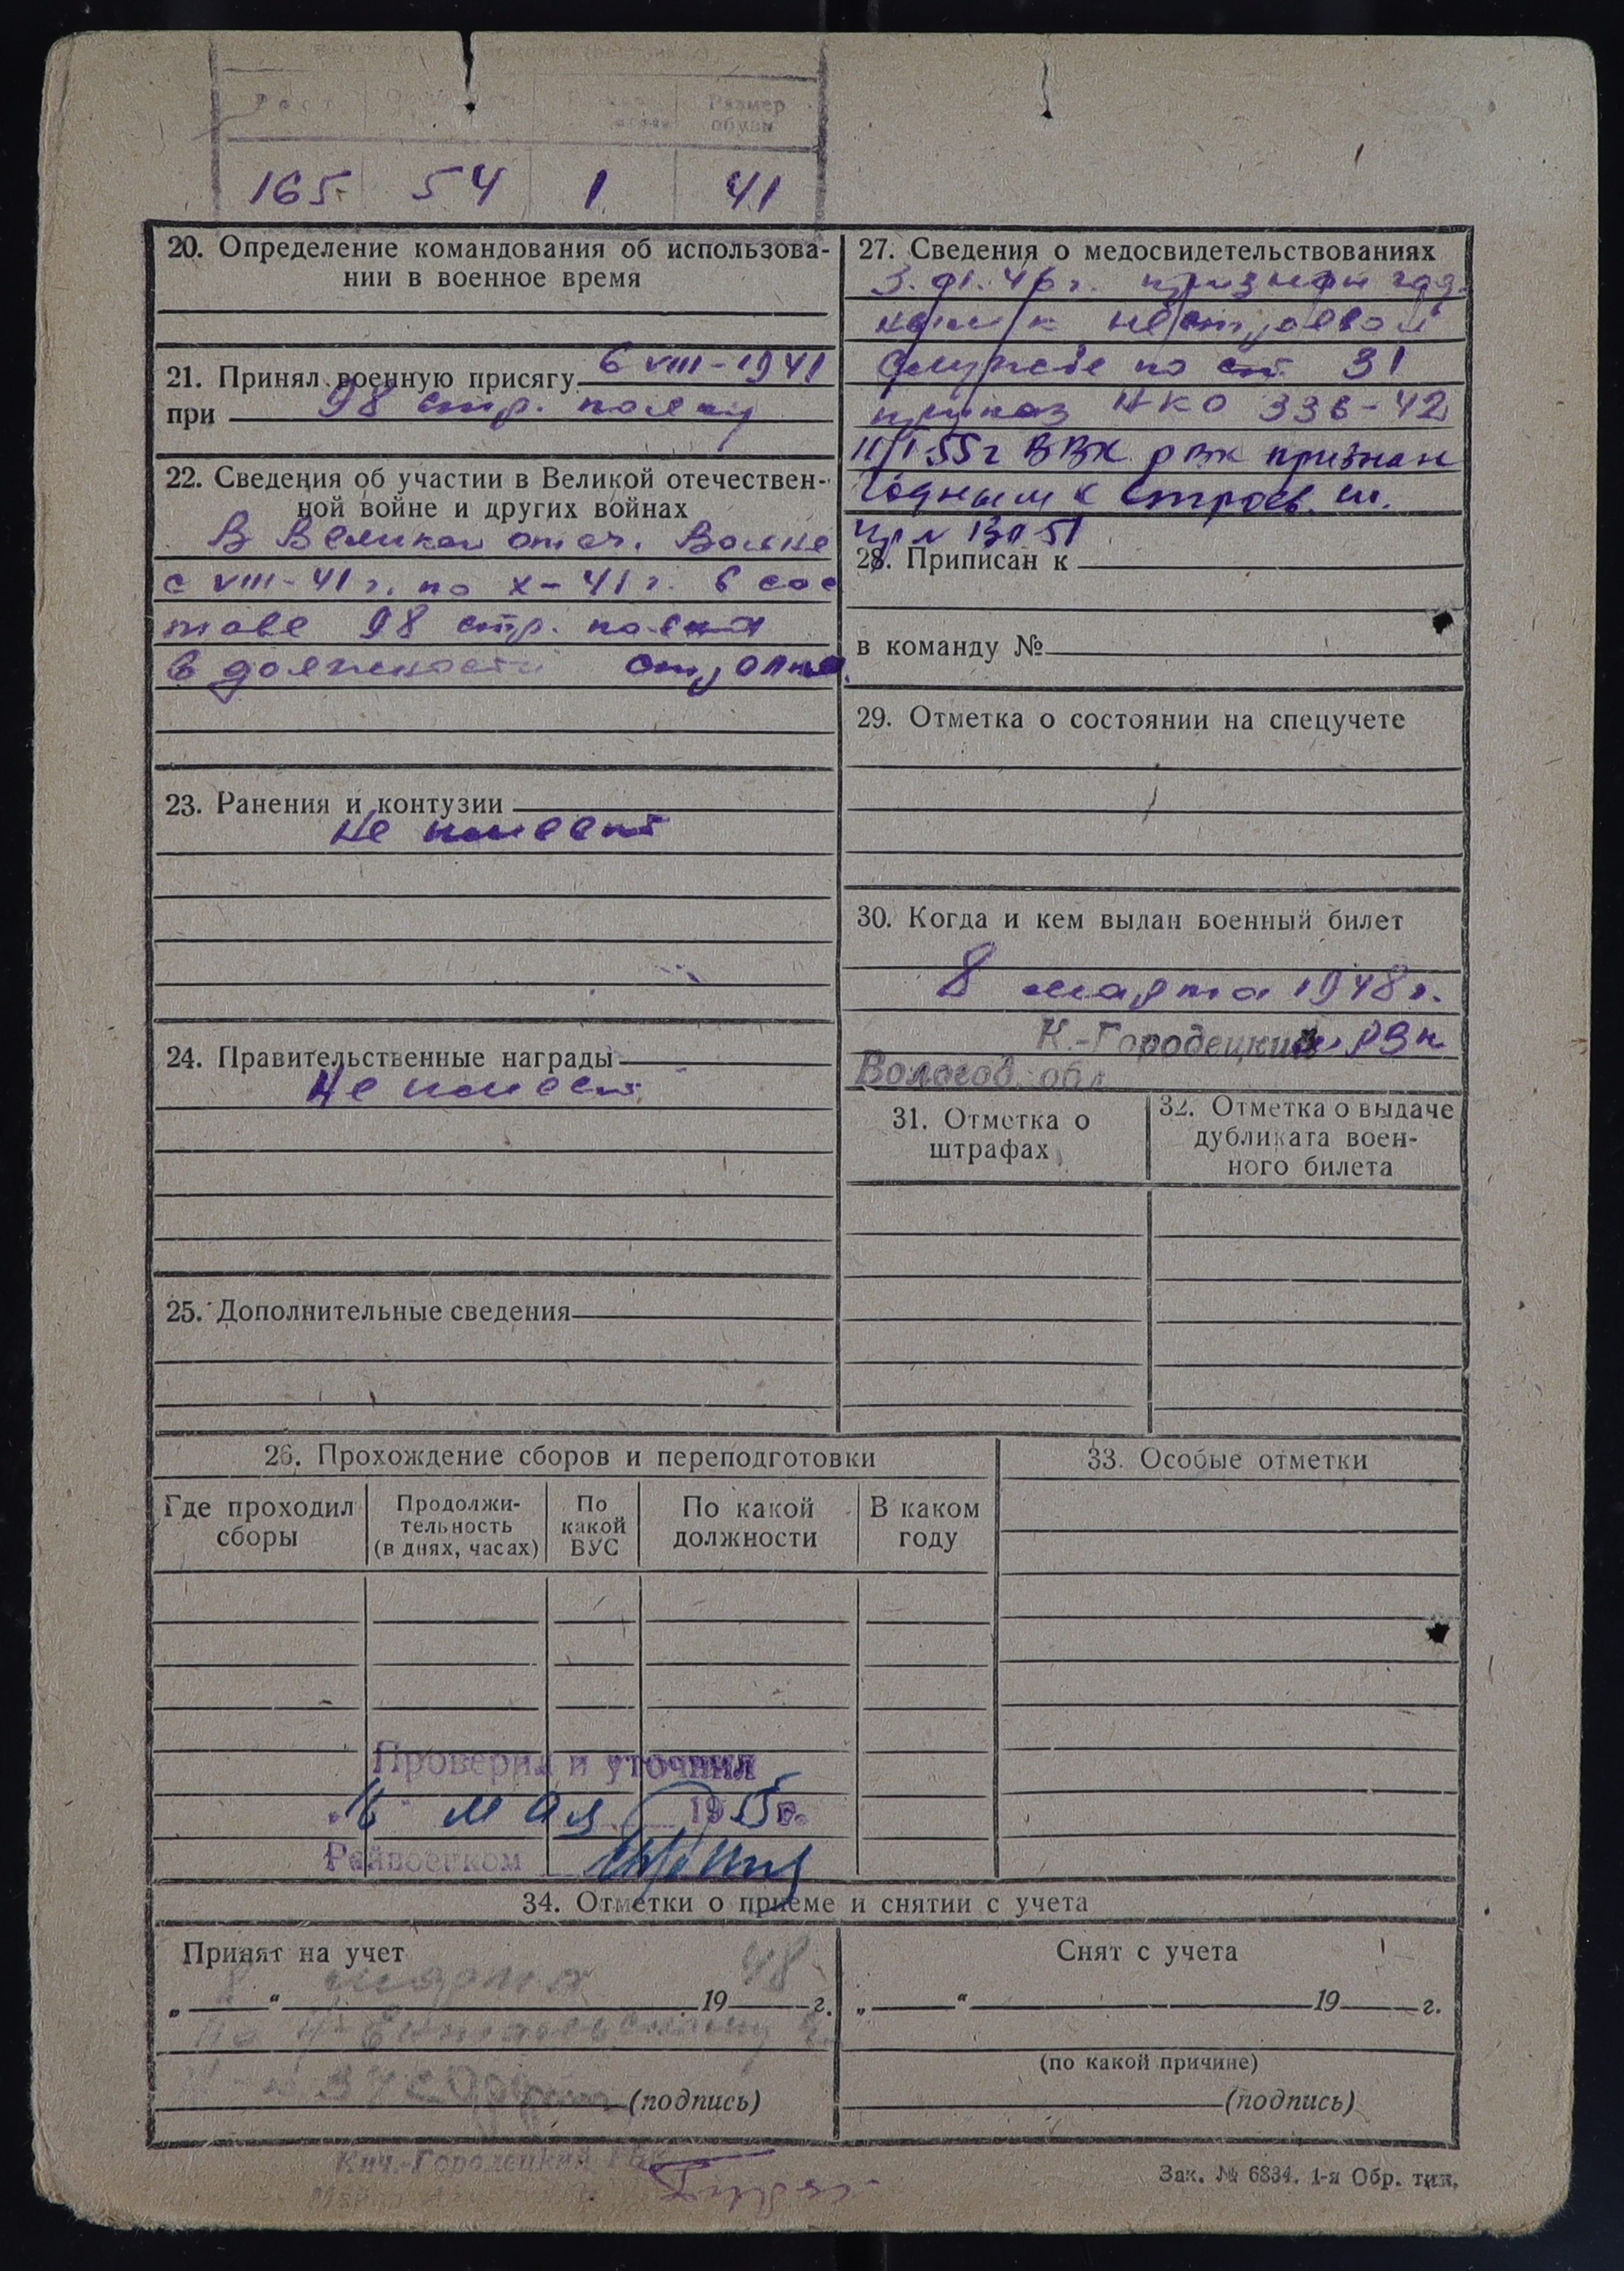 Рост Размер
обуви
165 54 1 41
20. Определение командования об использова-
нии в военное время
21. Принял военную присягу 6 VIII-1941
при 98 стр. полку
22. Сведения об участии в Великой отечествен-
ной войне и других войнах
В Великой отеч. Войне
с VIII-41 г. по X-41 г. в сос
таве 98 стр. полка
в должности стрелка
23. Ранения и контузии
Не имеет
24. Правительственные награды
Не имеет
25. Дополнительные сведения
27. Сведения о медосвидетельствованиях
признан год
ным к нестроевой
службе по ст. 31
приказ НКО 336-42
11/I 55 г ВВК РВК признан
годным к строев. сл.
28. Приписан к
в команду №
29. Отметка о состоянии на спецучете
30. Когда и кем выдан военный билет
8 марта 1948 г.
К.-Городецкий РВК
Вологод. обл
31. Отметка о
штрафах
32. Отметка о выдаче
дубликата воен-
ного билета
26. Прохождение сборов и переподготовки
Где проходил
сборы
Продолжи-
тельность
(в днях, часах)
По
какой
ВУС
По какой
должности
В каком
году
33. Особые отметки
Проверил и уточнил
„16" мая 1955 г.
Райвоенком
34. Отметки о приеме и снятии с учета
Принят на учет
„8“ марта 1948 г.
(подпись)
Снят с учета
„ “ 19 г.
(по какой причине)
(подпись)
Кич.-Городецкий РВК
Зак. № 6834. 1-я Обр. тип.